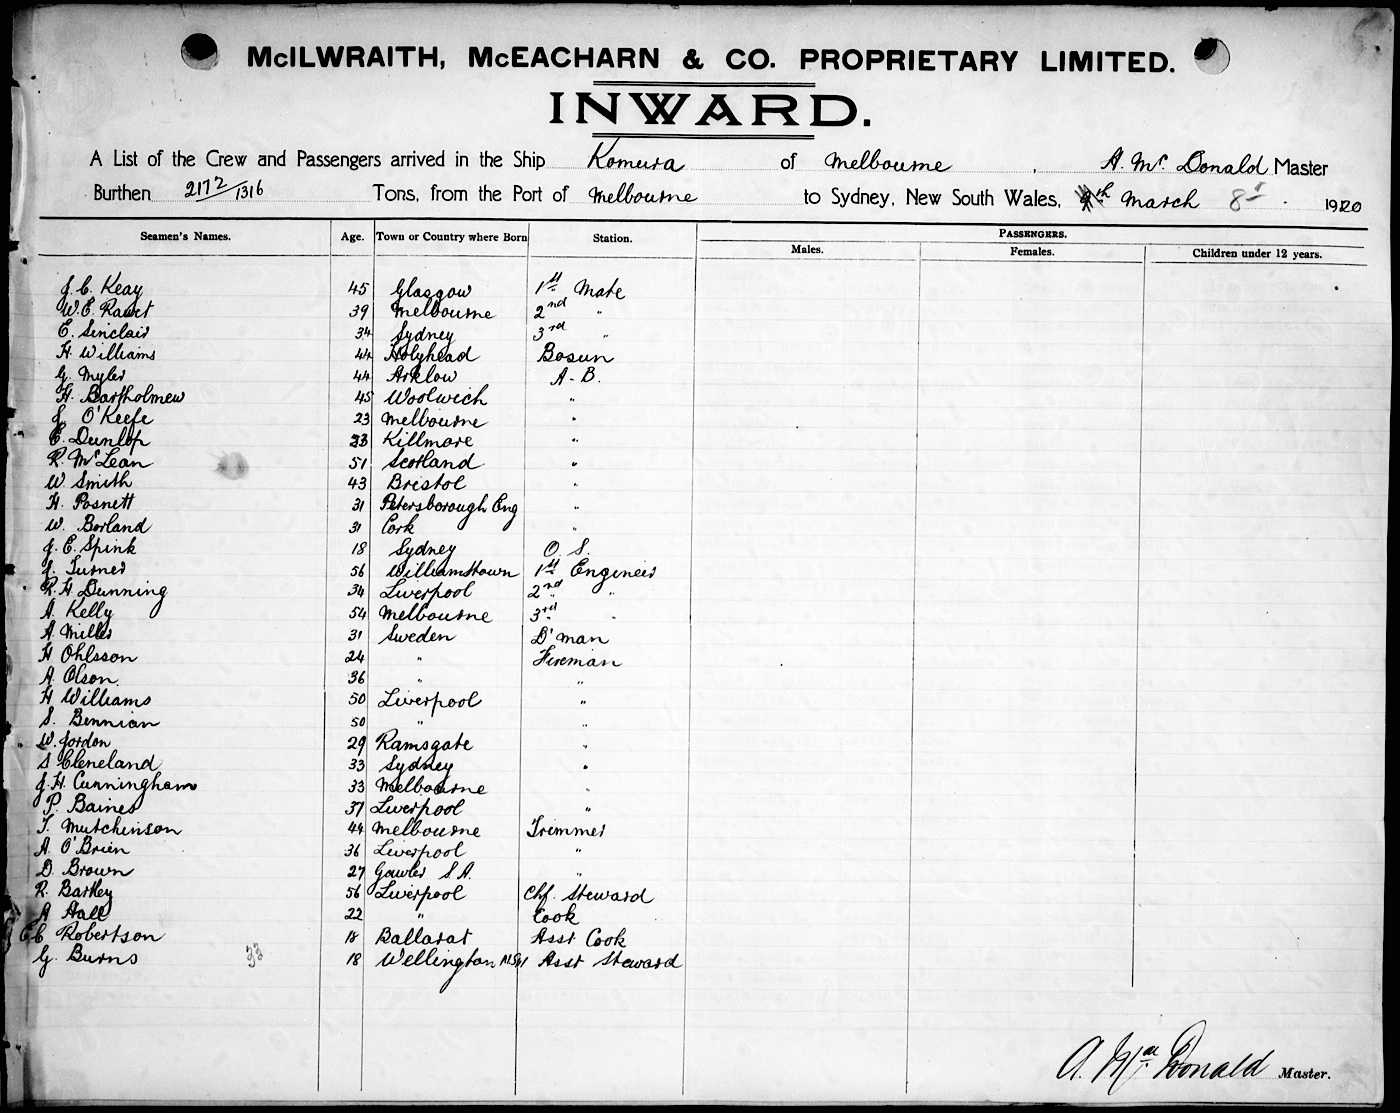 McILWRAITH, McEACHARN & CO. PROPRIETARY LIMITED.
INWARD.
A List of the Crew and Passengers arrived in the Ship Komura of Melbourne, A. Mc. Donald Master
Burthen 2172/1316 Tons, from the Port of Melbourne to Sydney, New South Wales, March 8th 1920
Seamen's Names. Age. Town or Country where Born Station. PASSENGERS.
Males. Females. Children under 12 years.
J. C. Keay 45 Glasgow 1st Mate
W. E. 39 Melbourne 2nd "
E. Sinclair 34 Sydney 3rd "
H. Williams 44 Holyhead Bosun
G. Myler 44 Arklow A-B.
H. Bartholmew 45 Woolwich "
J. O'Keefe 23 Melbourne "
E. Dunlop 23 Killmore "
R. Mc Lean 51 Scotland "
W Smith 43 Bristol "
H. Posnett 31 Petersborough Eng "
W. Borland 31 Cork "
J. E. Spink 18 Sydney O. S.
J. Turner 56 Williamstown 1st Engineer
R. H Dunning 34 Liverpool 2nd "
A. Kelly 54 Melbourne 3rd "
A Miller 31 Sweden D'man
H Ohlsson 24 " Fireman
A Olson. 36 " "
H Williams 50 Liverpool "
S. Bennian 50 " "
W. Jordon 29 Ramsgate "
S Cleneland 33 Sydney "
J. H. Cunningham 33 Melbourne "
P. Baines 37 Liverpool "
T. Mutchinson 44 Melbourne Trimmer
A. O'Brien 36 Liverpool "
D. Brown 27 Gawler S.A. "
R. Bartley 56 Liverpool Chf. Steward
A Hall 22 " Cook
E C Robertson 18 Ballarat Asst Cook
G. Burns 18 Wellington NSW Asst Steward
33
A. Mac Donald Master.